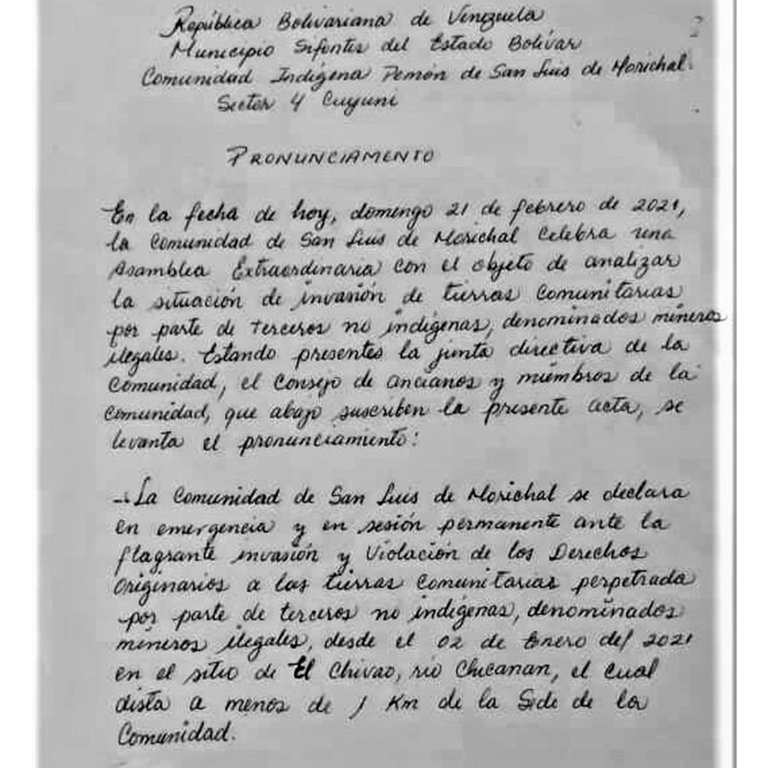 República Bolivariana de Venezuela
Municipio Sifontes del Estado Bolívar
Comunidad Indígena Pemón de San Luis de Morichal.
Sector 4 Cuyuni
PRONUNCIAMENTO
En la fecha de hoy, domingo 21 de febrero de 2021,
la Comunidad de San Luis de Morichal Celebra una
Asamblea Extraordinaria con el objeto de analizar
la situación de invasión de tierras Comunitarias
por parte de terceros no indígenas, denominados mineros
ilegales. Estando presentes la junta directiva de la
Comunidad, el Consejo de ancianos y miembros de la
Comunidad, que abajo suscriben la presente acta, se
levanta el pronunciamiento:
- La Comunidad de San Luis de Morichal se declara
en emergencia y en sesión permanente ante la
flagrante invasión y Violación de los Derechos
Originarios a las tierras Comunitarias perpetrada
por parte de terceros no indígenas, denominados
mineros ilegales, desde el 02 de Enero del 2021
en el sitio de El Chivao, río Chicanan, el cual
dista a menos de 1 Km de la Sede de la
Comunidad.